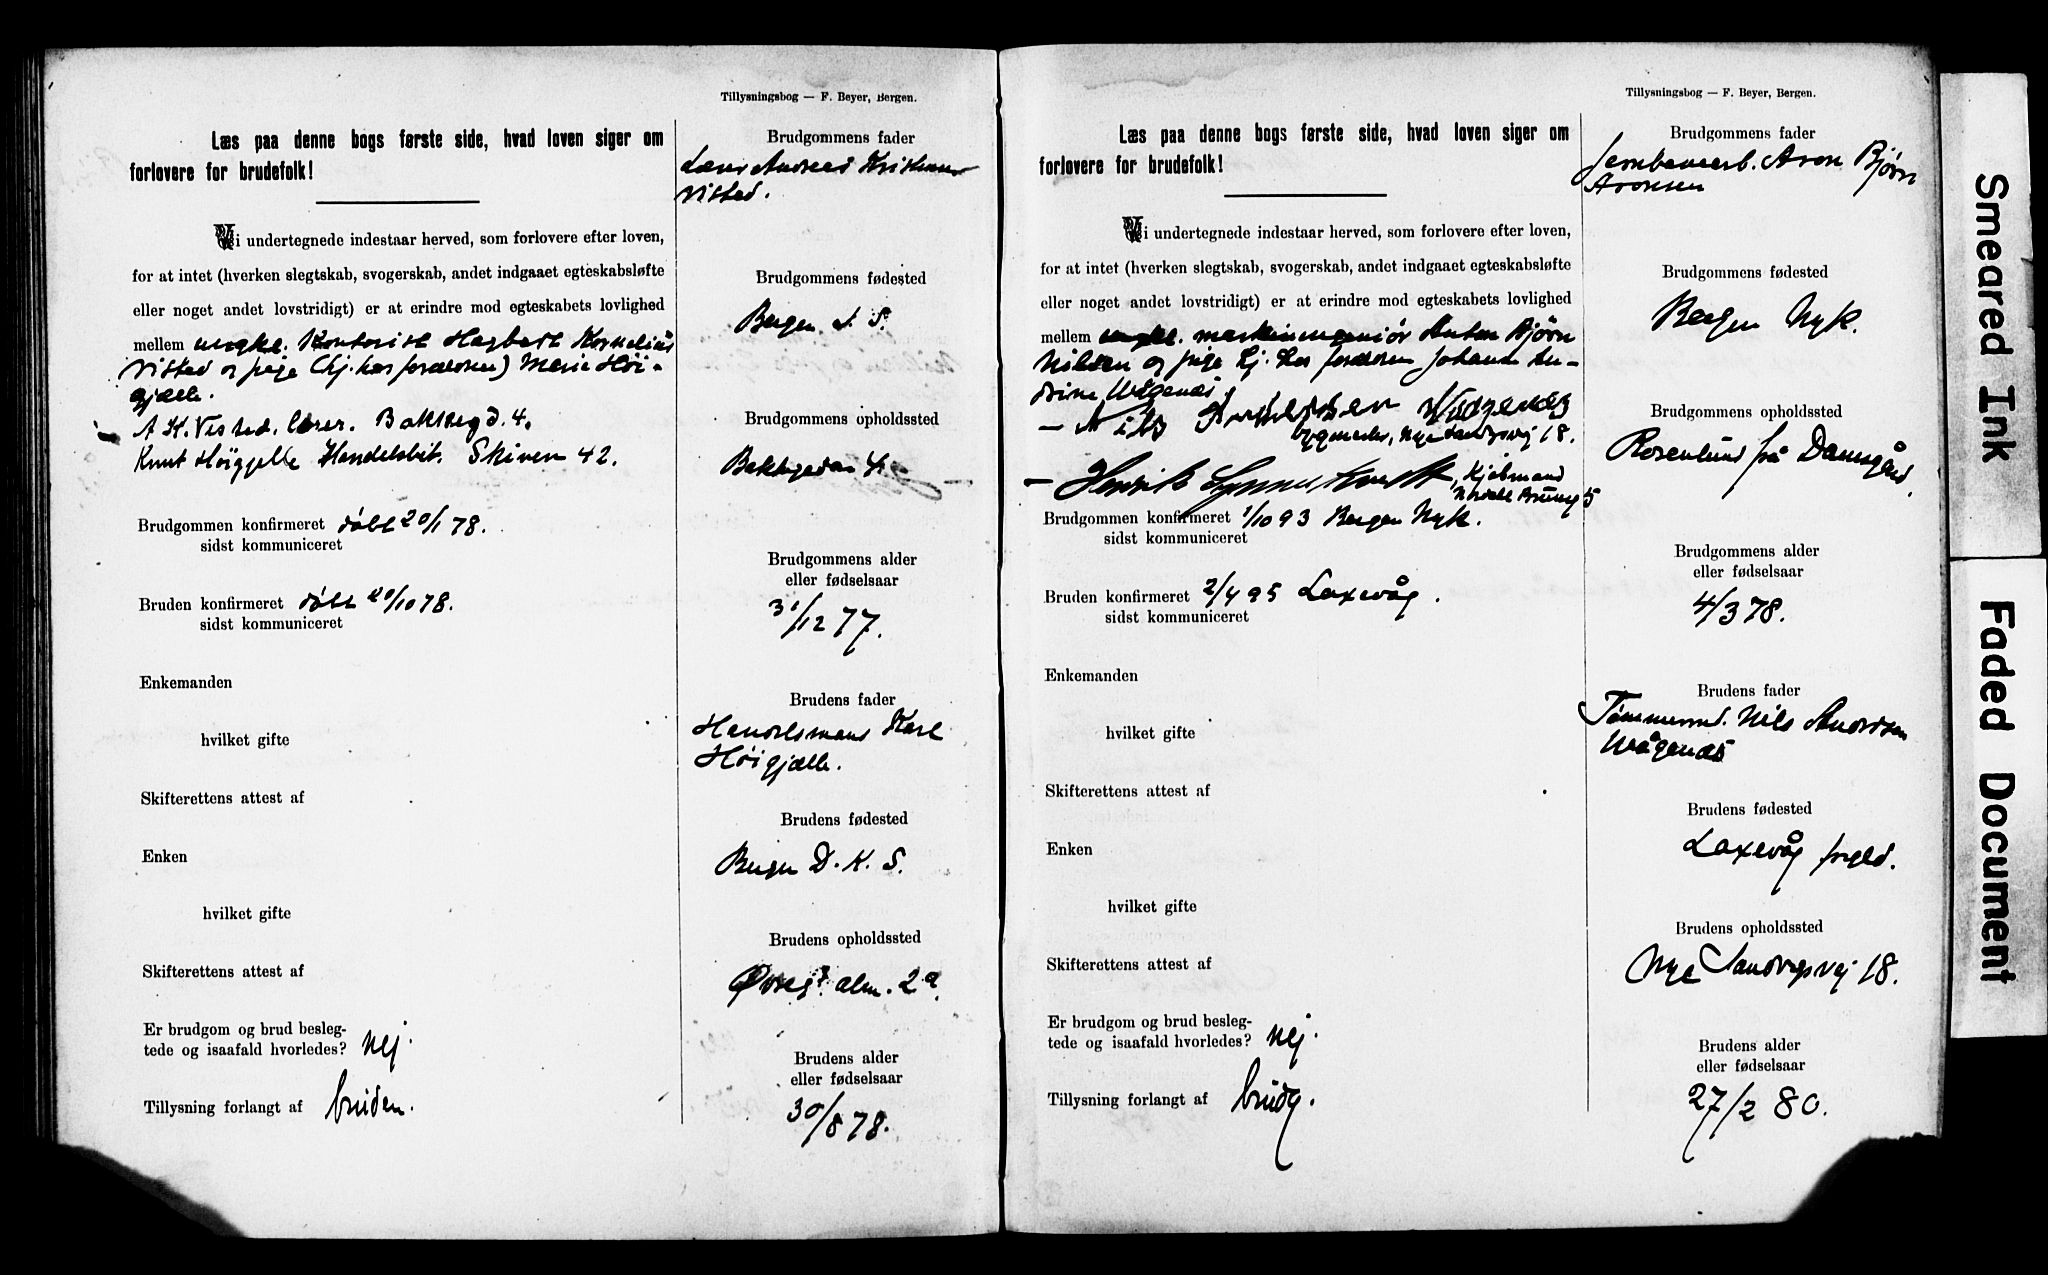 Tillysningsbog — F. Beyer, Bergen.
Læs paa denne bogs første side, hvad loven siger om
forlovere for brudefolk!
Vi undertegnede indestaar herved, som forlovere efter loven,
for at intet (hverken slegtskab, svogerskab, andet indgaaet egteskabsløfte
eller noget andet lovstridigt) er at erindre mod egteskabets lovlighed
mellem ungkl. Kontorist Hagbart Kornelius
Visted og pige (hj. hos forældrene) Marie Høi-
gjælle.
A K. Visted. lærer. Bakkegd. 4.
Knut Høiggelle Handelsbet. Skiven 42.
Brudgommen konfirmeret døbt 20/1 78.
sidst kommuniceret
Bruden konfirmeret døbt 20/10 78.
sidst kommuniceret
Enkemanden
hvilket gifte
Skifterettens attest af
Enken
hvilket gifte
Skifterettens attest af
Er brudgom og brud besleg-
tede og isaafald hvorledes? nej.
Tillysning forlangt af bruden.
Brudgommens fader
Lærer Andreas Kristian
Visted.
Brudgommens fødested
Bergen J. S.
Brudgommens opholdssted
Bakkegaden 4
Brudgommens alder
eller fødselsaar
31/12 77.
Brudens fader
Handelsmand Karl
Høigjælle.
Brudens fødested
Bergen D. K. S.
Brudens opholdssted
Øvreg. alm. 29.
Brudens alder
eller fødselsaar
30/8 78.
Tillysningsbog — F. Beyer, Bergen.
Læs paa denne bogs første side, hvad loven siger om
forlovere for brudefolk!
Vi undertegnede indestaar herved, som forlovere efter loven,
for at intet (hverken slegtskab, svogerskab, andet indgaaet egteskabsløfte
eller noget andet lovstridigt) er at erindre mod egteskabets lovlighed
mellem ungkl. maskiningeniør Anton Bjørn
Nilsen og pige hj. hos forældrene Johanne An-
drine Wågenæs
— Nils Wågenæs
bygmester, Nye Sandvigsvej 18.
— Henrik Kjøbmand
Brudgommen konfirmeret 1/10 93 Bergen Nyk.
sidst kommuniceret
Bruden konfirmeret 2/4 95 Laxevåg.
sidst kommuniceret
Enkemanden
hvilket gifte
Skifterettens attest af
Enken
hvilket gifte
Skifterettens attest af
Er brudgom og brud besleg-
tede og isaafald hvorledes? nej.
Tillysning forlangt af brudg.
Brudgommens fader
Jernbanearb. Aron Bjørn
Aronsen
Brudgommens fødested
Bergen Nyk.
Brudgommens opholdssted
Rosenlund frå Damsgård.
Brudgommens alder
eller fødselsaar
4/3 78.
Brudens fader
Tømmermd. Nils Andersen
Wågenæs
Brudens fødested
Laxevåg
Brudens opholdssted
Nye Sandvigsvej 18.
Brudens alder
eller fødselsaar
27/2 80.
Smeared Ink
Faded Document